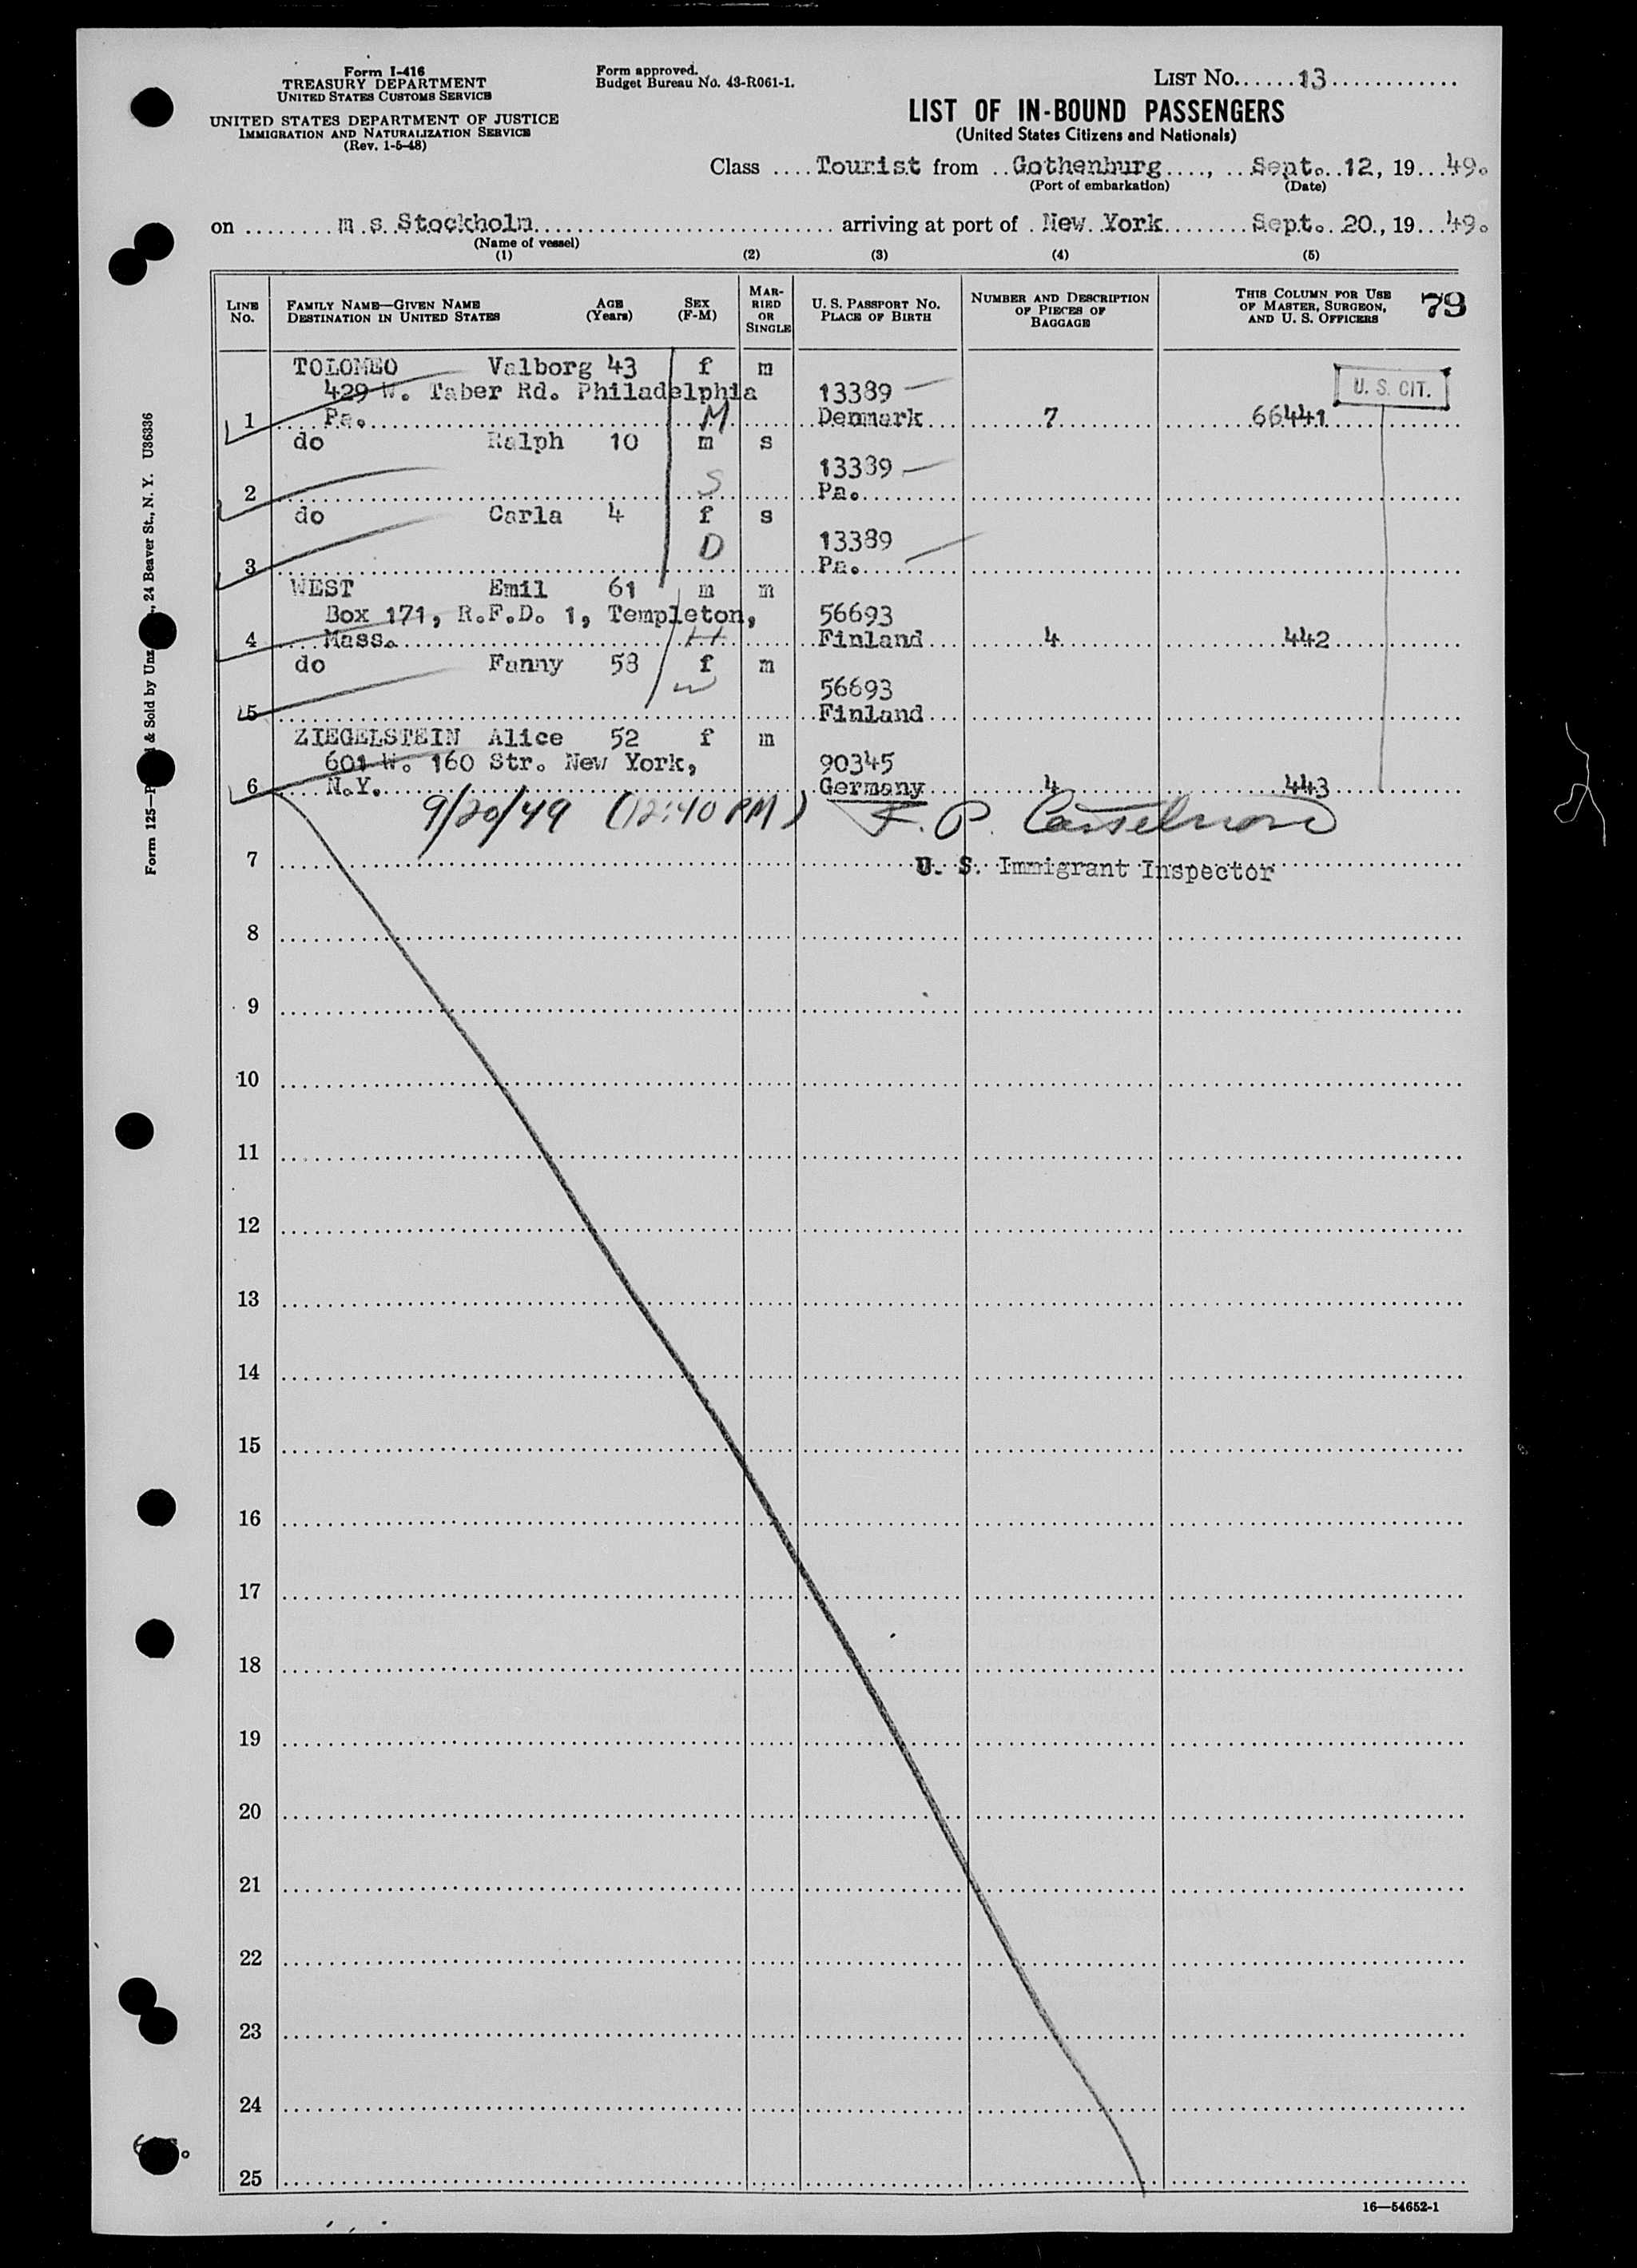 Form I-416
TREASURY DEPARTMENT
UNITED STATES CUSTOMS SERVICE
UNITED STATES DEPARTMENT OF JUSTICE
IMMIGRATION AND NATURALIZATION SERVICE
(Rev. 1-5-48)
Form approved.
Budget Bureau No. 43-R061-1.
LIST No. 13
LIST OF IN-BOUND PASSENGERS
(United States Citizens and Nationals)
Class Tourist from Gothenburg, Sept. 12, 19 49.
(Port of embarkation) (Date)
on m s Stockholm arriving at port of New York Sept. 20, 19 49.
(Name of vessel)
(1) (2) (3) (4) (5)
LINE No. FAMILY NAME—GIVEN NAME DESTINATION IN UNITED STATES AGE (Years) SEX (F-M) MARRIED OR SINGLE U. S. PASSPORT No. PLACE OF BIRTH NUMBER AND DESCRIPTION OF PIECES OF BAGGAGE THIS COLUMN FOR USE OF MASTER, SURGEON, AND U. S. OFFICERS 79
TOLOMEO Valborg 43 f m
429 W. Taber Rd. Philadelphia 13389 U. S. CIT.
1 Pa. M Denmark 7 66441
do Ralph 10 m s
13389
2 S Pa.
do Carla 4 f s
D 13389
3 Pa.
WEST Emil 61 m m
Box 171, R.F.D. 1, Templeton, 56693
4 Mass. H Finland 4 442
do Fanny 58 f m
W 56693
5 Finland
ZIEGELSTEIN Alice 52 f m
601 W. 160 Str. New York, 90345
6 N.Y. Germany 4 443
9/20/49 (12:40 PM) F. P. Casselmon
7 U. S. Immigrant Inspector
8
9
10
11
12
13
14
15
16
17
18
19
20
21
22
23
24
25
16—54652-1
Form 125— & Sold by , 24 Beaver St., N. Y. U36336